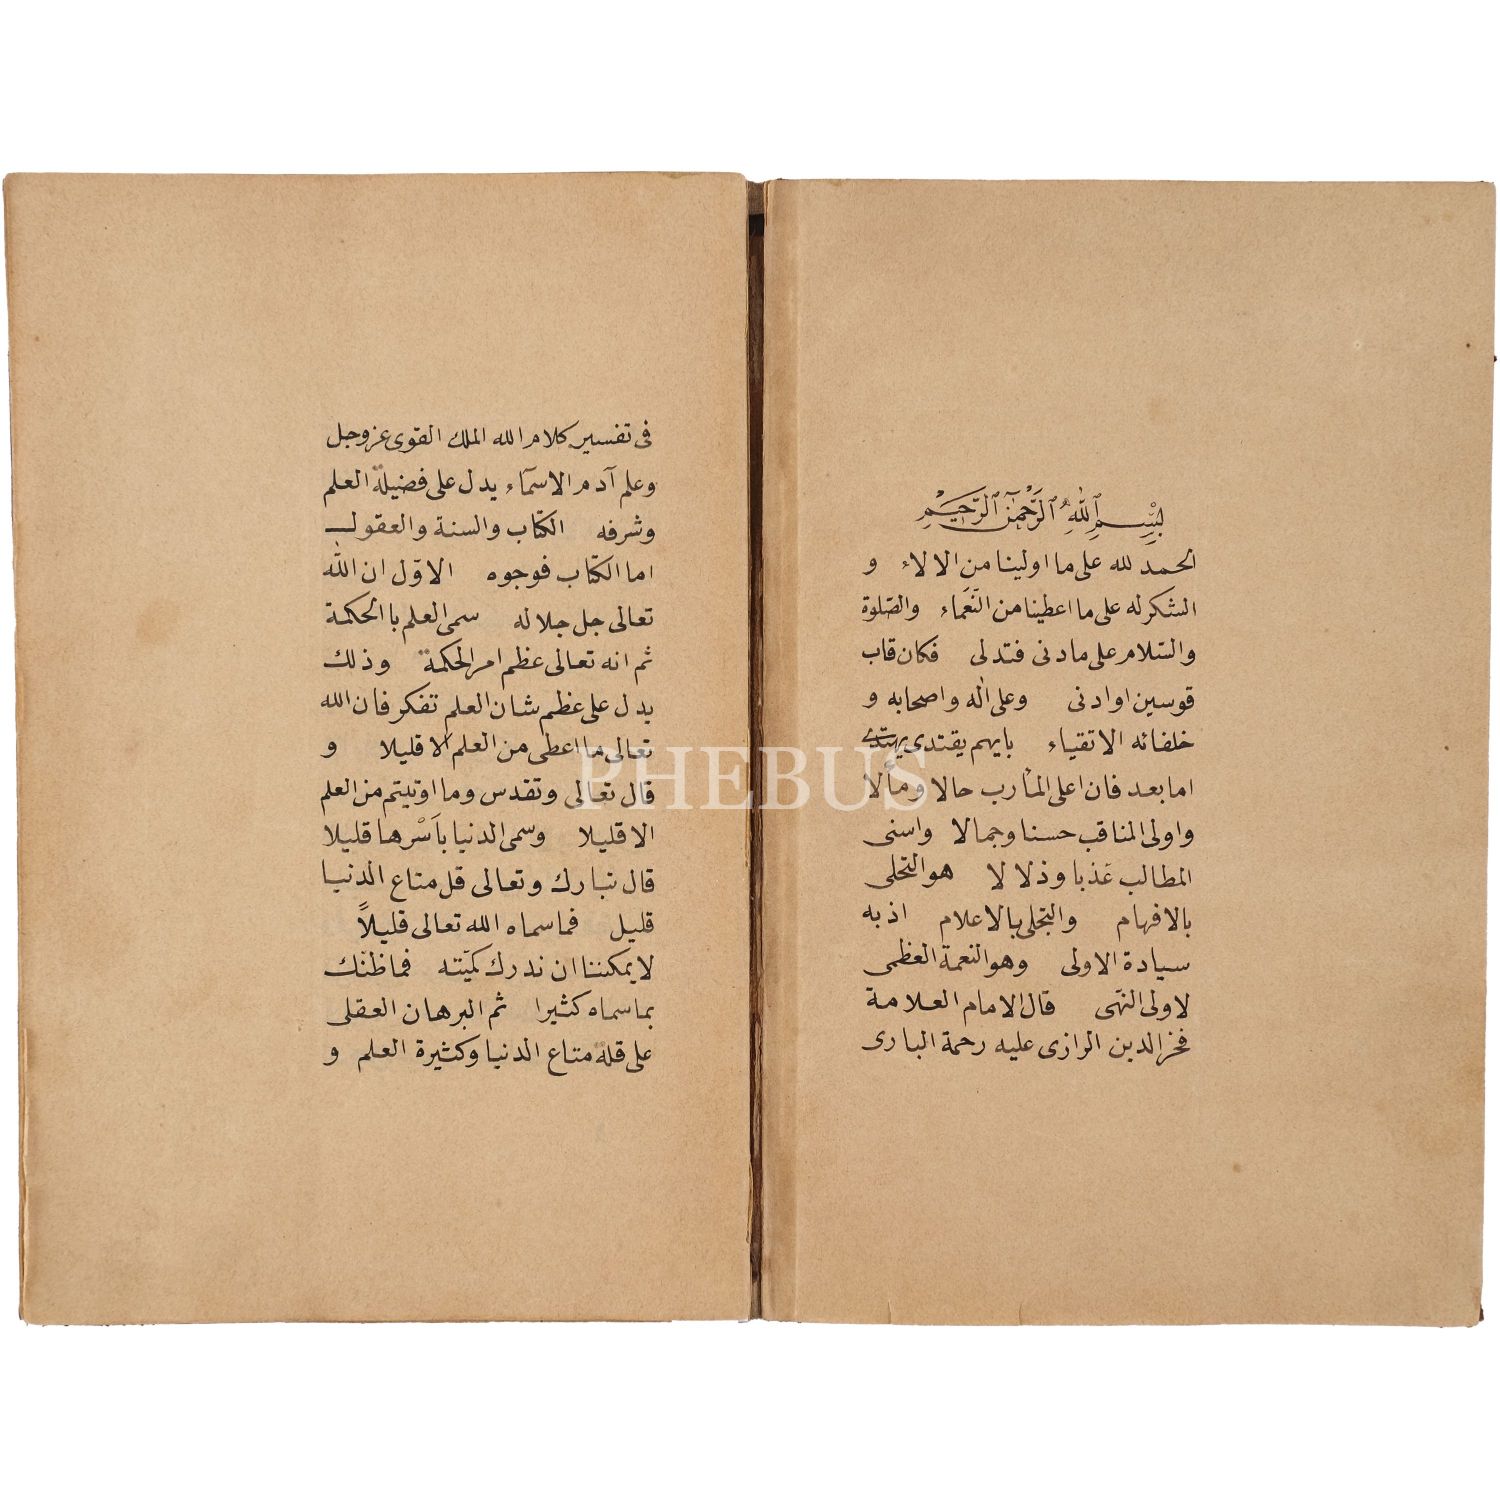 بِسْمِ ٱللَّهِ ٱلرَّحْمٰنِ ٱلرَّحِيمِ
الحمد لله على ما اولينا من الالاء و
الشكر له على ما اعطينا من النَّعَماء والصّلوة
والسّلام على مادنى فتدلى فكان قاب
قوسين اوادنى وعلى اله واصحابه و
خلفائه الاتقياء بايهم يقتدى يهتدى
اما بعد فان اعلى المأرب حالا ومألا
واولى المناقب حسنا وجمالا واسنى
المطالب عَذبا وذلالا هو التحلى
بالافهام والتجلى بالاعلام اذ به
سيادة الاولى وهو النعمة العظمى
لاولى النّهى قال الامام العلامة
فخر الدين الرازى عليه رحمة البارى
فى تفسير كلام الله الملك القوى عز وجل
وعلم آدم الاسمآء يدل على فضيلة العلم
وشرفه الكتاب والسنة والعقول
اما الكتاب فوجوه الاوّل ان الله
تعالى جل جلاله سمى العلم باالحكمة
ثم انه تعالى عظم امر الحكمة وذلك
يدل على عظم شان العلم تفكر فان الله
تعالى ما اعطى من العلم الا قليلا و
قال تعالى وتقدس وما اوتيتم من العلم
الا قليلا وسمى الدنيا باَسْرها قليلا
قال تبارك وتعالى قل متاع الدنيا
قليل فما سماه الله تعالى قليلاً
لا يمكننا ان ندرك كميّته فما ظنّك
بما سماه كثيرا ثم البرهان العقلى
على قلة متاع الدنيا وكثيرة العلم و
PHEBUS